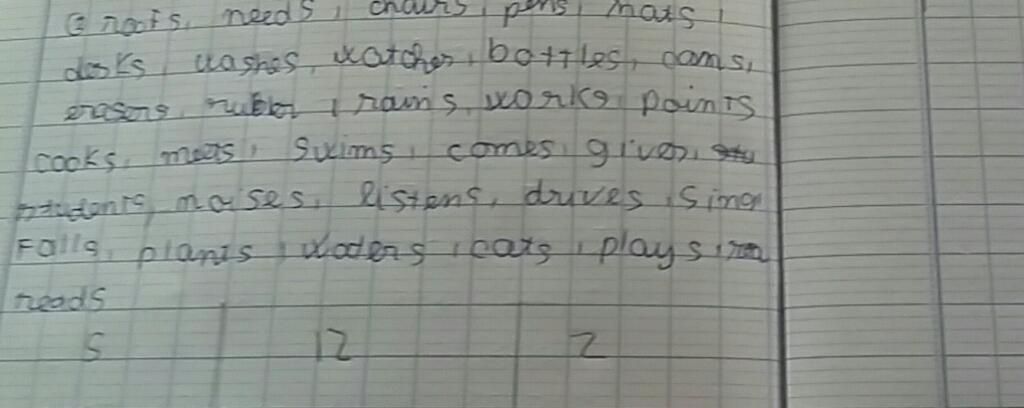 roofs, needs, chairs, pens, mats,
desks, washes, watches, bottles, dams,
erasers, rubber, rains, works, points
cooks, meets, swims, comes, gives,
students, noises, listens, drives,
Falls, plants, waters, eats, plays,
reads
S 12 Z